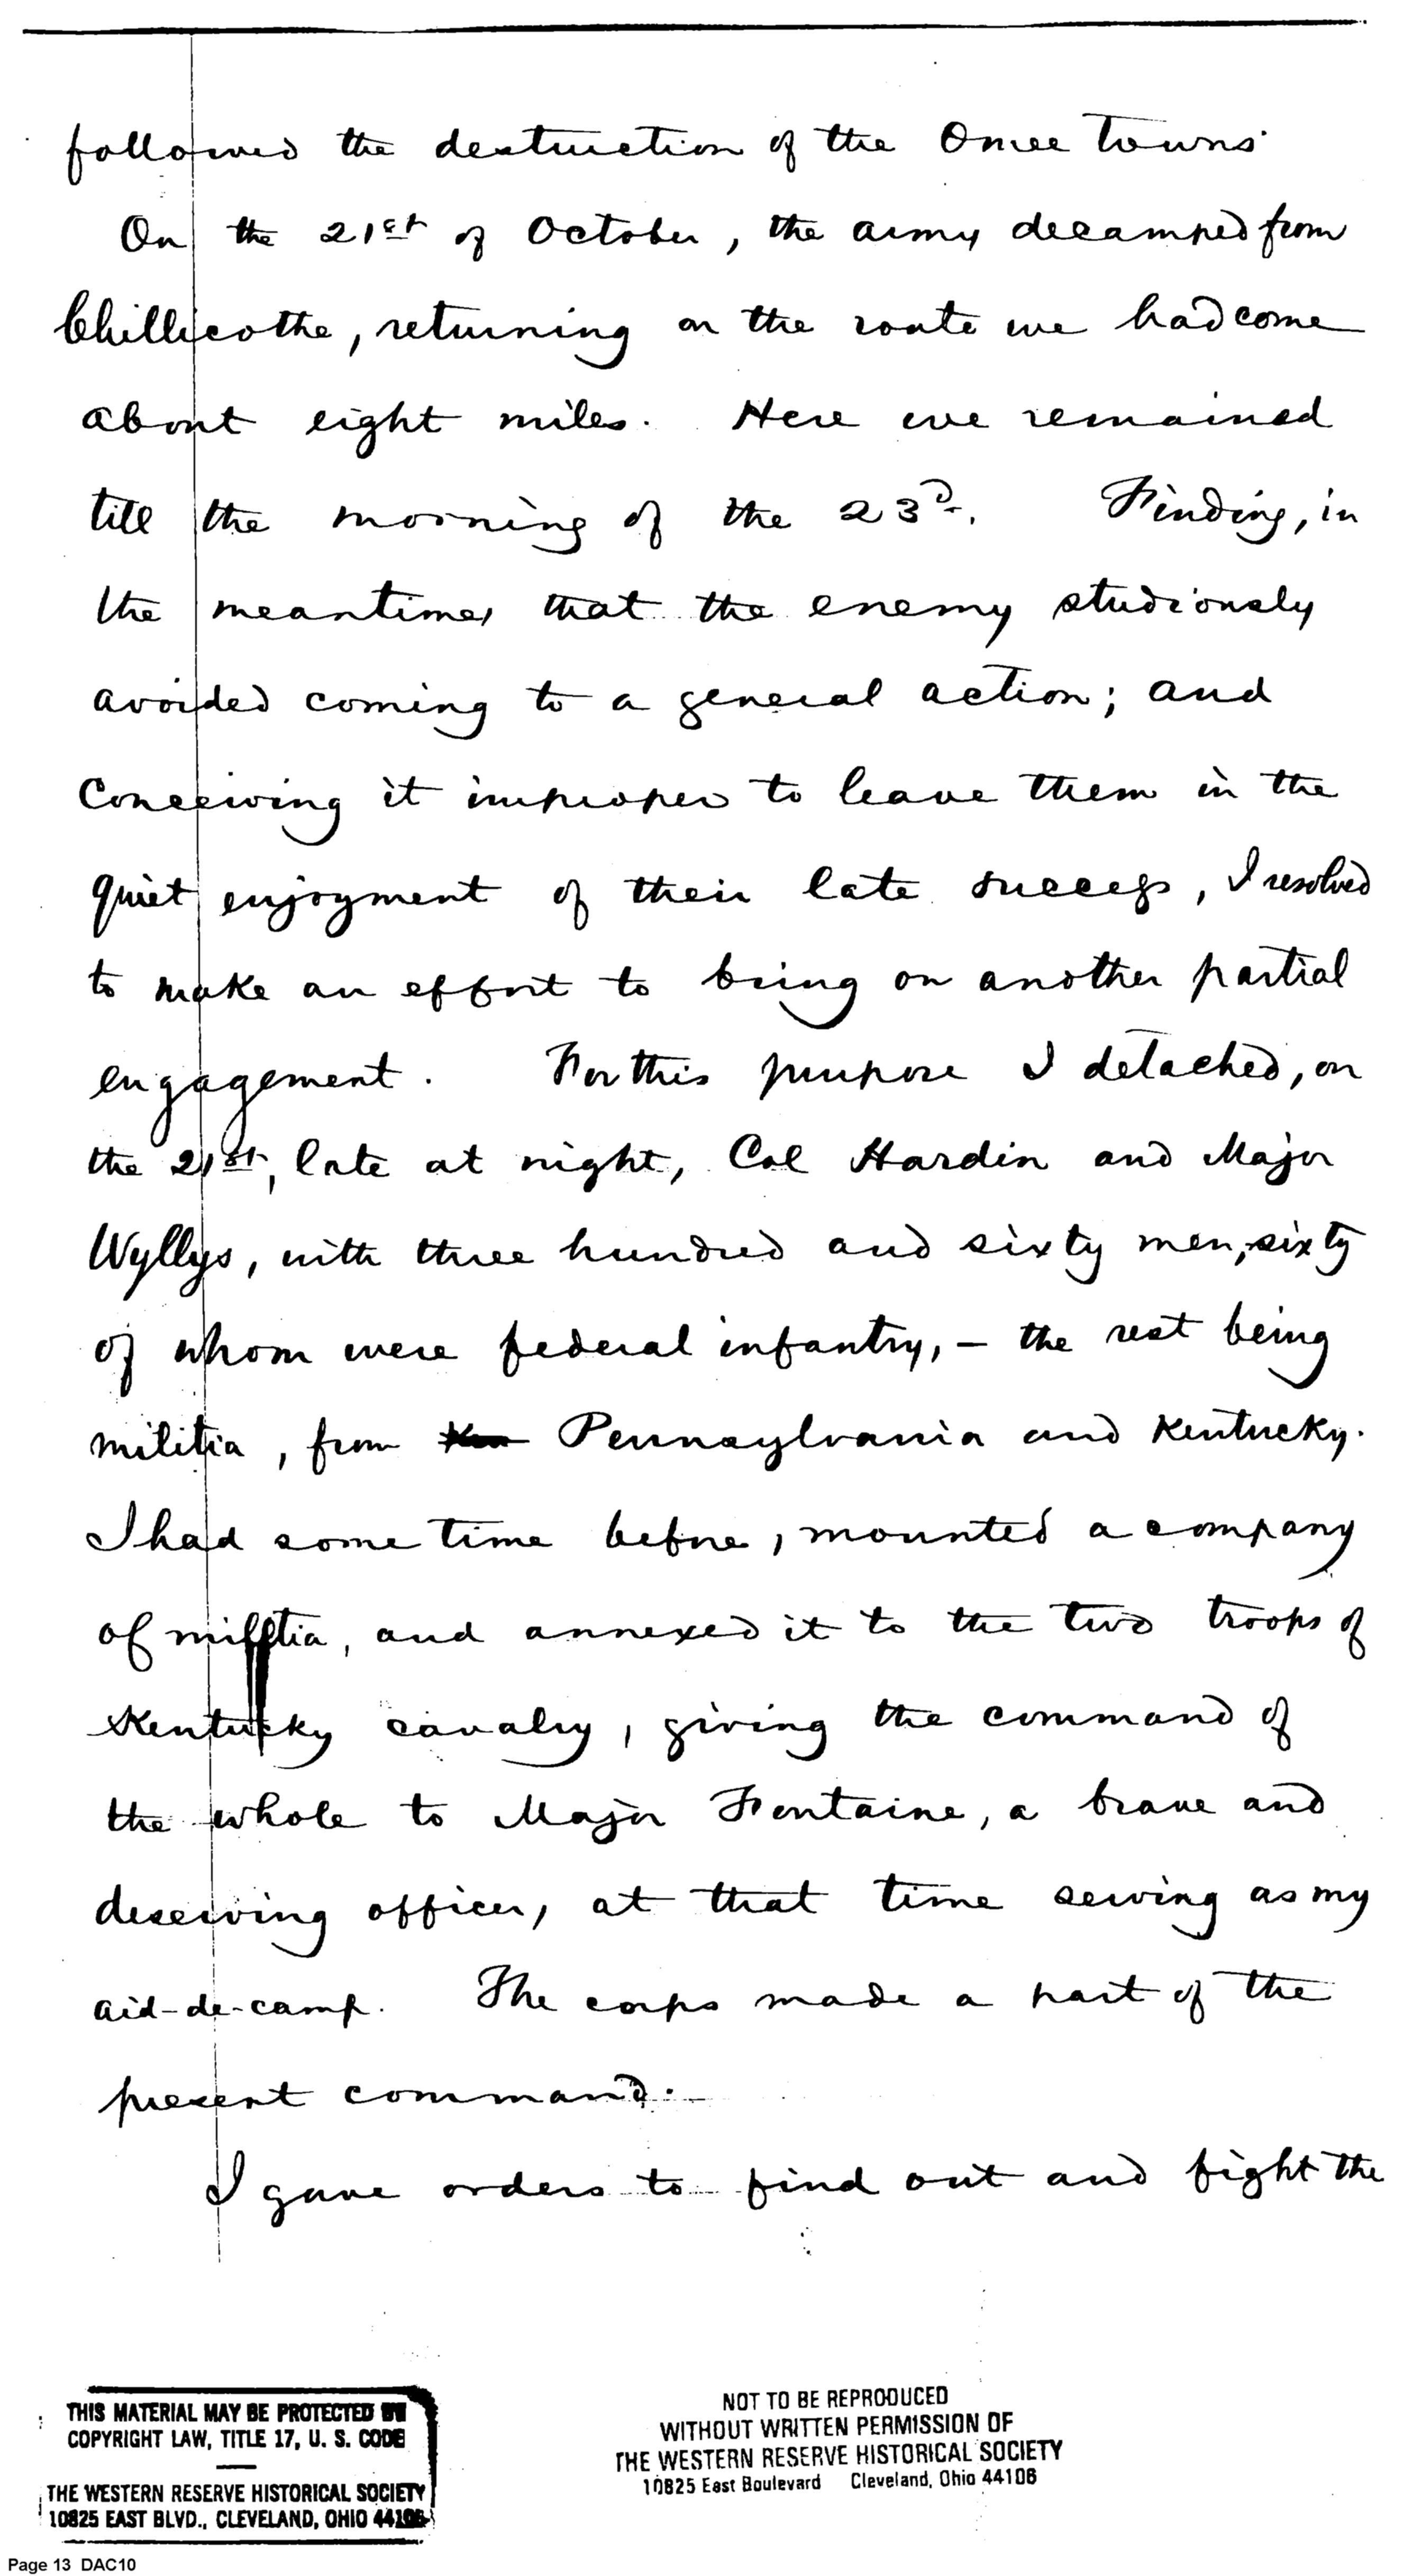 followed the destruction of the Omee Towns
On the 21st of October, the army decamped from
Chillicothe, returning on the route we had come
about eight miles. Here we remained
till the morning of the 23d. Finding, in
the meantime, that the enemy studiously
avoided coming to a general action; and
conceiving it improper to leave them in the
quiet enjoyment of their late success, I resolved
to make an effort to bring on another partial
engagement. For this purpose I detached, on
the 21st, late at night, Col Hardin and Major
Wyllys, with three hundred and sixty men, sixty
of whom were federal infantry, - the rest being
militia, from Ken Pennsylvania and Kentucky.
I had some time before, mounted a company
of militia, and annexed it to the two troops of
Kentucky cavalry, giving the command of
the whole to Major Fontaine, a brave and
deserving officer, at that time serving as my
aid-de-camp. The corps made a part of the
present command.
I gave orders to find out and fight the
THIS MATERIAL MAY BE PROTECTED BY
COPYRIGHT LAW, TITLE 17, U. S. CODE
THE WESTERN RESERVE HISTORICAL SOCIETY
10825 EAST BLVD., CLEVELAND, OHIO 44106
NOT TO BE REPRODUCED
WITHOUT WRITTEN PERMISSION OF
THE WESTERN RESERVE HISTORICAL SOCIETY
10825 East Boulevard Cleveland, Ohio 44106
Page 13 DAC10